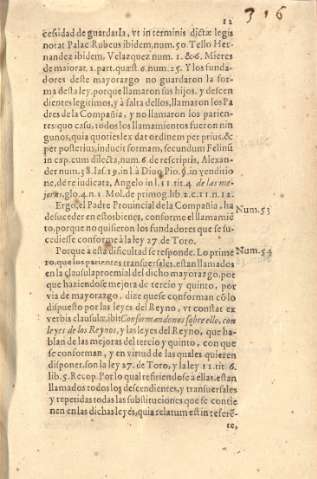 12
316
cessidad de guardarla, vt in terminis dictæ legis
notat Palac. Rubeus ibidem, num. 50. Tello Her-
nandez ibidem. Velazquez num. 1. &6. Mieres
de maiorat. 1. part. quæst. 6. num. 25. Y los funda-
dores deste mayorazgo no guardaron la for-
ma desta ley, porque llamaron sus hijos, y descen
dientes legitimos, y à falta dellos, llamaron los Pa
dres de la Compañia, y no llamaron los parien-
tes quo casu, todos los llamamientos fueron nin-
gunos, quia quoties lex dat ordinem per prius, &
per posterius, inducit formam, secundum Felinũ
in cap. cum dilecta, num. 6 de rescriptis, Alexan-
der num. 38. las. 19. in l. à Diuo Pio. §. in venditio
ne, dè re iudicata, Angelo in l. 11. tit. 4. de las me-
joras, glo. 4. n 1. Mol. de primog. lib. 2. c. 11. n 12.
Ergo, el Padre Prouincial de la Compañia, ha
de suceder en estos bienes, conforme el llamamiẽ
to, porque no quisieron los fundadores que se su-
cediesse conforme à la ley 27. de Toro.
Num. 53
Porque à esta dificultad se responde. Lo prime
ro, que los parientes transuersales, estan llamados
en la clausula proemial del dicho mayorazgo, por
que haziendose mejora de tercio y quinto, por
via de mayorazgo, dize que se conforman cõ lo
dispuesto por las leyes del Reyno, vt constat ex
verbis clausulæ, ibi: Conformandonos sobre ello, con
leyes de los Reynos, y las leyes del Reyno, que ha-
blan de las mejoras del tercio y quinto, con que
se conforman, y en virtud de las quales quieren
disponer, son la ley 27. de Toro, y la ley 11. tit. 6.
lib. 5. Recop. Por lo qual refiriendose à ellas, estan
llamados todos los descendientes, y transuersales
y repetidas todas las substituciones que se contie
nen en las dichas leyes, quia relatum est in referẽ-
Num. 54
te,